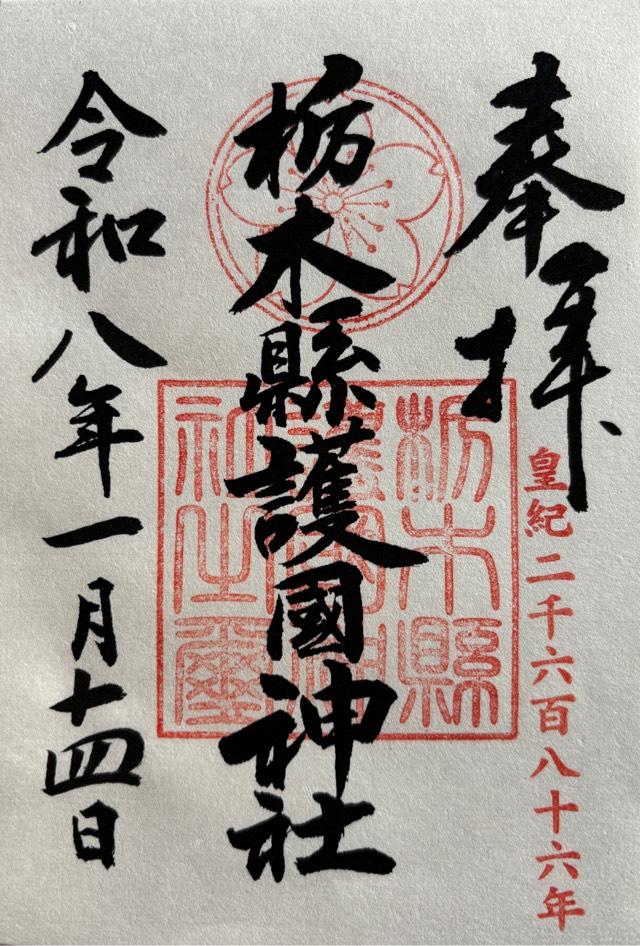 奉拝
皇紀二千六百八十六年
栃木縣護國神社
栃木縣
護國神
社之璽
令和八年一月十四日